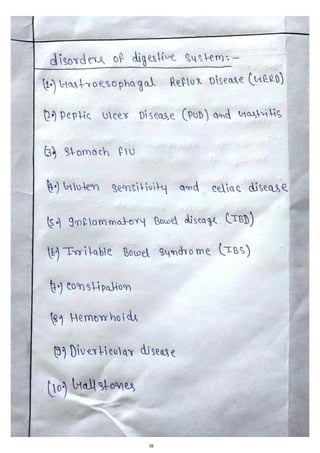 disorders of digestive system:-
(1.) Gastroesophagal Reflux Disease (GERD)
(2.) Peptic Ulcer Disease (PUD) and Gastritis
(3) Stomach flu
(4.) Gluten Sensitivity and celiac disease
(5.) Inflammatory Bowel disease (IBD)
(6) Irritable Bowel Syndrome (IBS)
(7.) Constipation
(8) Hemorrhoids
(9) Diverticular disease
(10.) Gallstones